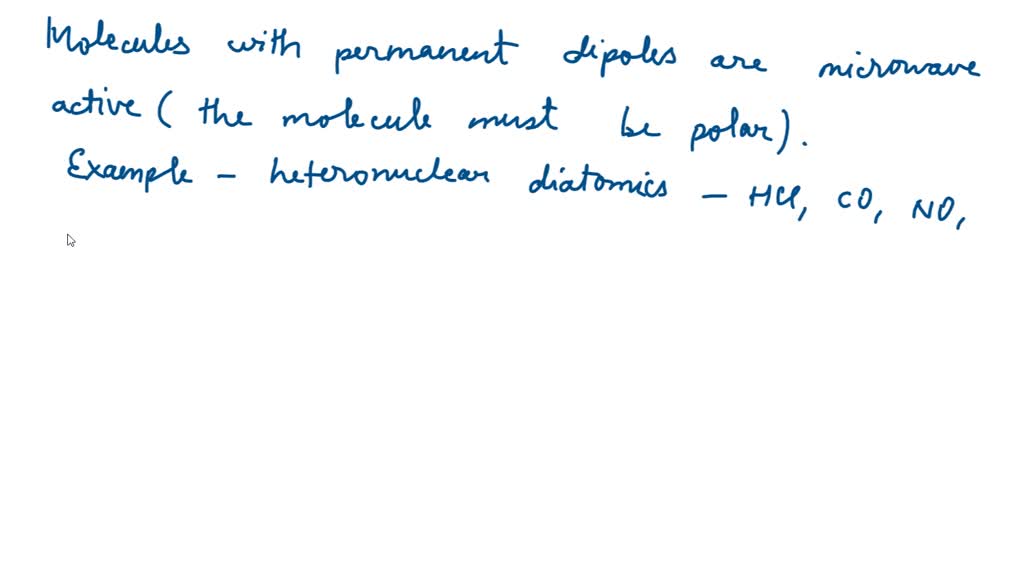 Molecules with permanent dipoles are microwave
active ( the molecule must be polar).
Example - heteronuclear diatomics - HCl, CO, NO,